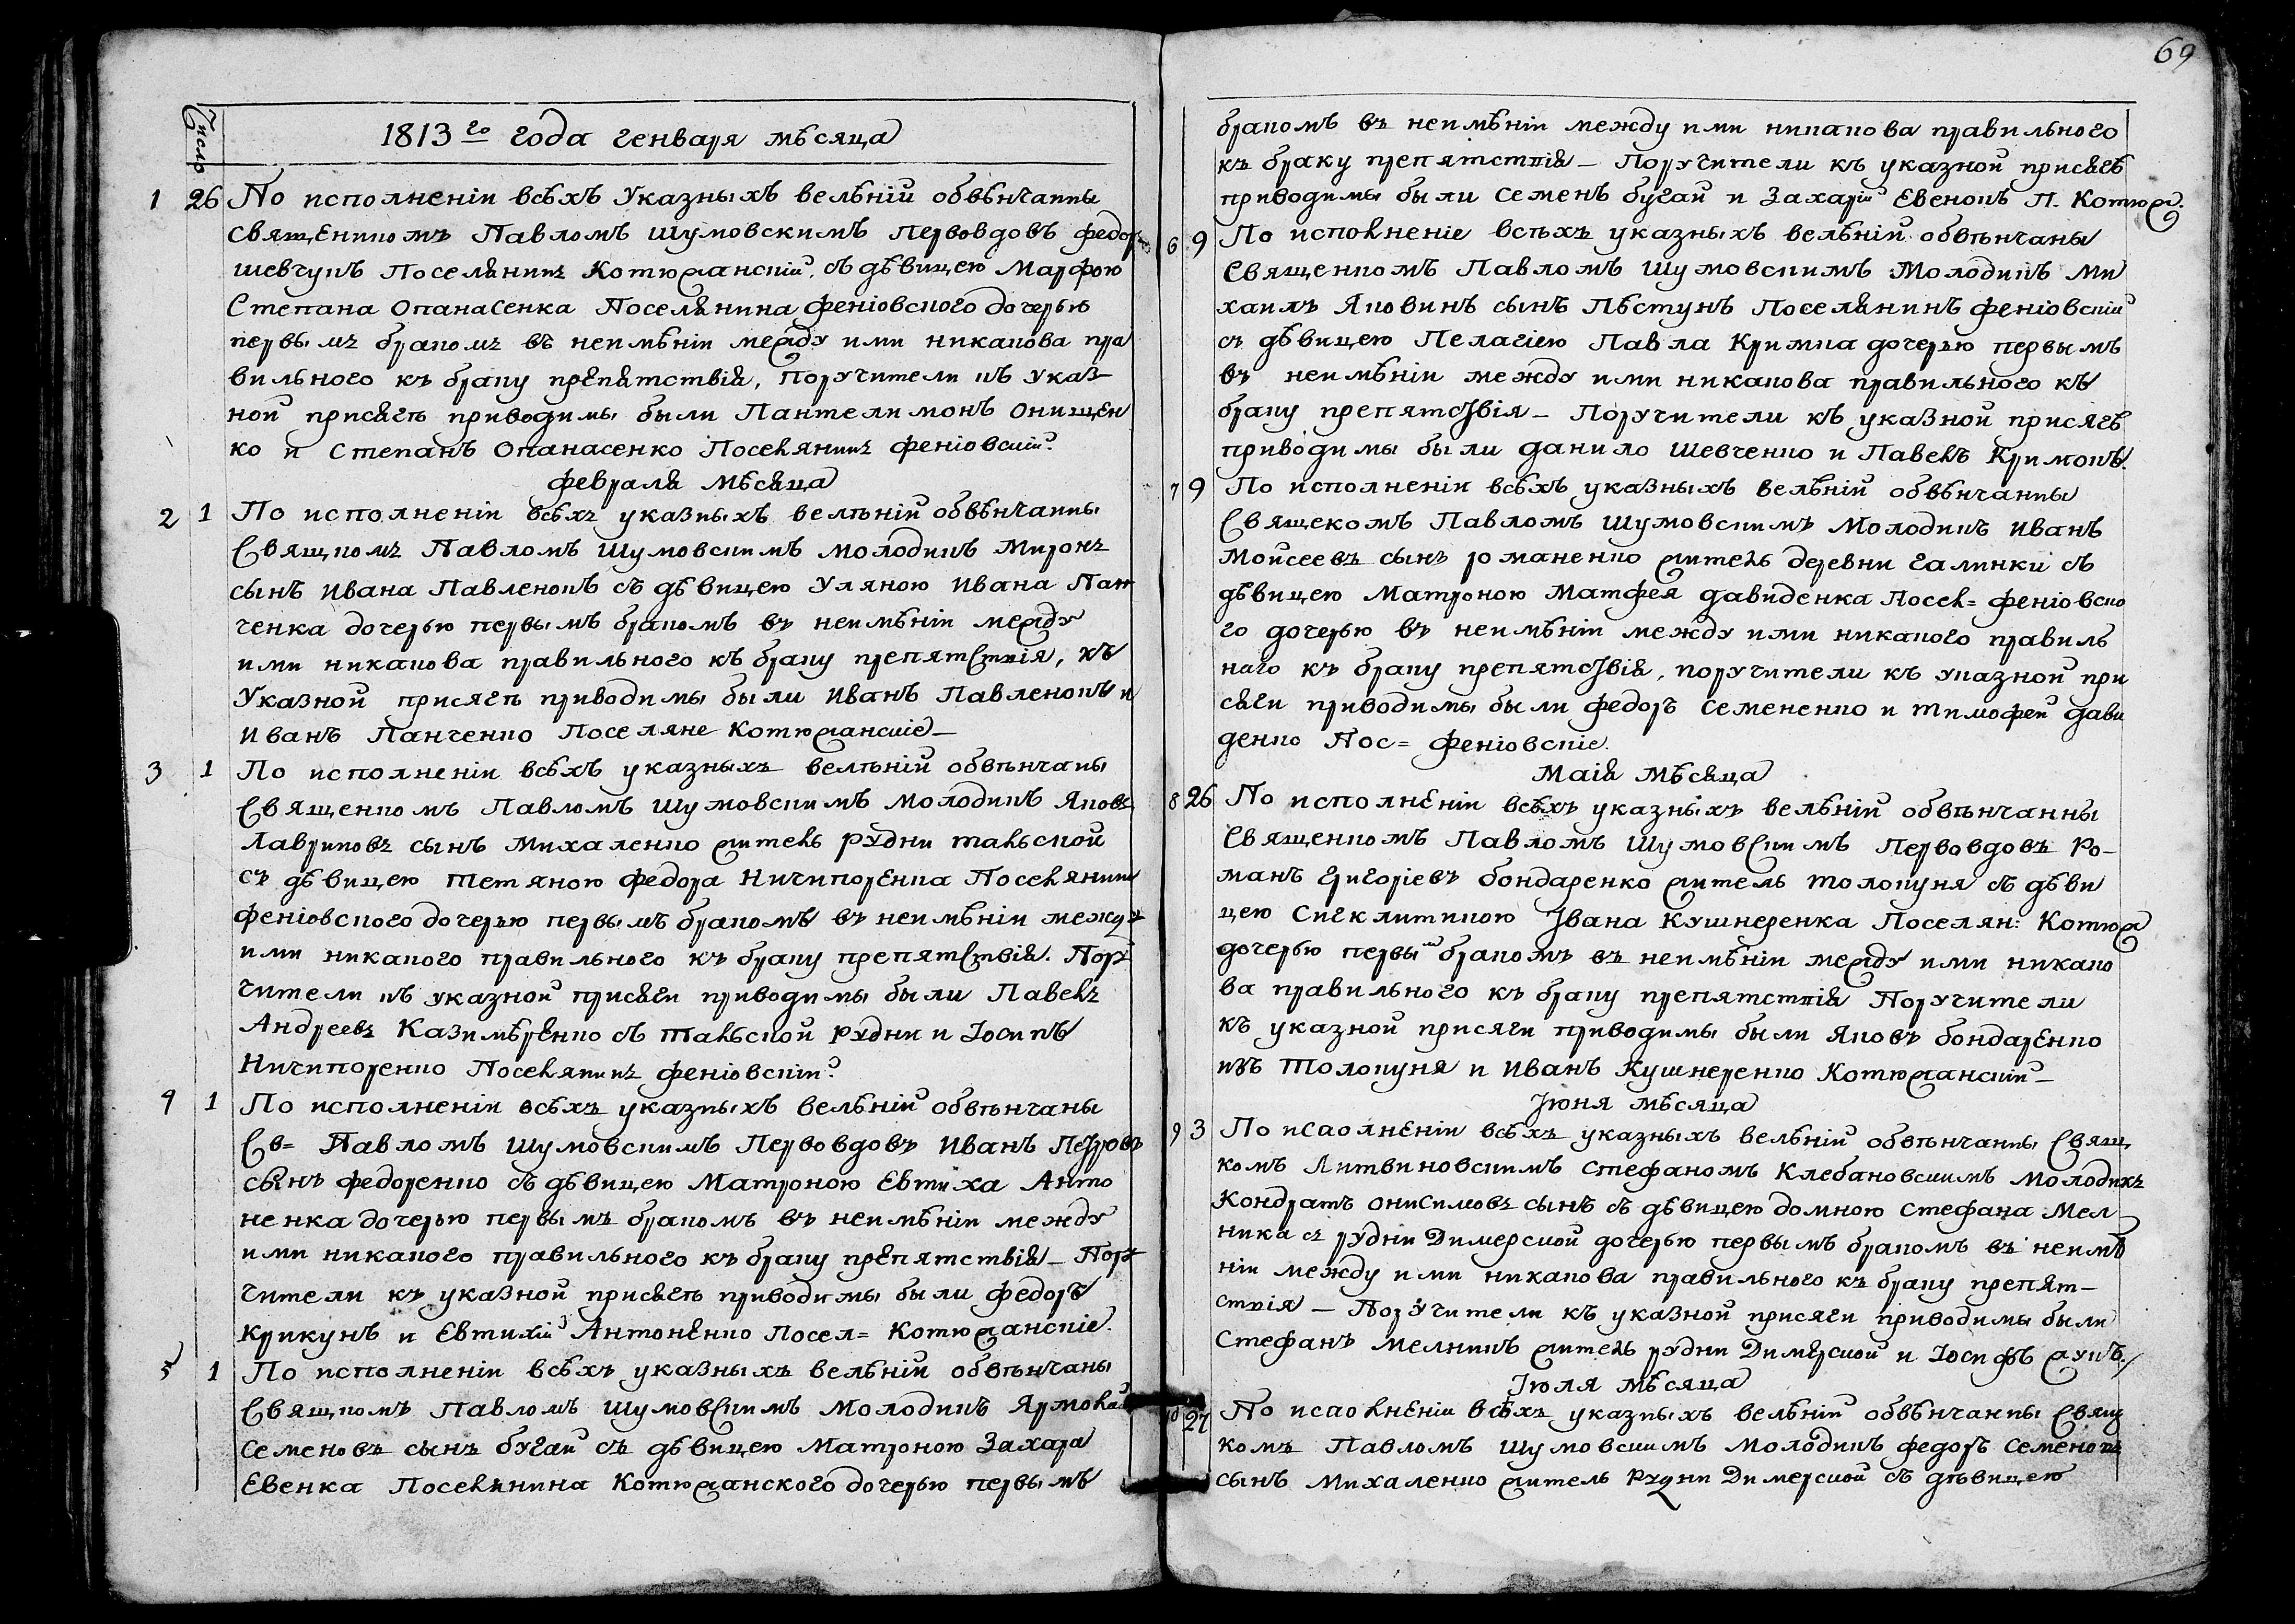 69
Число
1813го года генваря мѣсяца
1 26 По исполненіи всѣхъ Указныхъ велѣній обвѣнчанны
священикомъ Павломъ Шумовскимъ первовдовъ федоръ
шевчукъ Поселянинъ Котюжанскій, съ дѣвицею Марфою
Степана Опанасенка Поселянина феніовского дочерью
первымъ бракомъ въ неимѣніи между ими никакова пра
вильного къ браку препятствія, Поручители къ указ
ной присягѣ приводимы были Пантелимонъ Онищен
ко и Степанъ Опанасенко Поселянинъ феніовскій
февраля мѣсяца
2 1 По исполненіи всѣхъ указныхъ велѣній обвѣнчанны
Свящкомъ Павломъ Шумовскимъ молодикъ Миронъ
сынъ Ивана Павленокъ съ дѣвицею Уляною Ивана Пан
ченка дочерью первымъ бракомъ въ неимѣніи между
ими никакова правильного къ браку препятствія, къ
Указной присягѣ приводимы были Иванъ Павленокъ и
Иванъ Панченко Поселяне Котюжанскіе —
3 1 По исполненіи всѣхъ указныхъ велѣній обвѣнчаны
Священкомъ Павломъ Шумовскимъ молодикъ Яковъ
Лавриковъ сынъ Михаленко житель рудни тальской
съ дѣвицею Тетяною федора Ничипоренка Поселянина
феніовского дочерью первымъ бракомъ въ неимѣніи между
ими никакого правильного къ браку препятствія. Пору
чители къ указной присяги приводимы были Павелъ
Андреевъ Казимѣренко съ тальской рудни и Іосипъ
Ничипоренко Поселянинъ феніовскій
4 1 По исполненіи всѣхъ указныхъ велѣній обвѣнчаны
Св= Павломъ Шумовскимъ Первовдовъ Иванъ Петровъ
сынъ федоренко съ дѣвицею Матроною Евтиха Анто
ненка дочерью первымъ бракомъ въ неимѣніи между
ими никакого правильного къ браку препятствія — Пору
чители къ указной присягѣ приводимы были федоръ
крикунъ и Евтихій Антоненко Посел= Котюжанскіе.
5 1 По исполненіи всѣхъ указныхъ велѣній обвѣнчаны
Свящкомъ Павломъ Шумовскимъ Молодикъ Ярмолай
Семеновъ сынъ бугай съ дѣвицею Матроною Захара
Евенка Поселянина Котюжанского дочерью первымъ
бракомъ въ неимѣніи между ими никакова правильного
къ браку препятствія — Поручители къ указной присягѣ
приводимы были Семенъ бугай и Захарій Евенокъ П. Котюж.
6 9 По исполненіе всѣхъ указныхъ велѣній обвѣнчаны
Священкомъ Павломъ Шумовскимъ Молодикъ Ми
хаилъ Яковинъ сынъ Пѣстунъ Поселянинъ феніовскій
съ дѣвицею Пелагіею Павла Кримка дочерью первымъ
въ неимѣніи между ими никакова правильного къ
браку препятствія — Поручители къ указной присягѣ
приводимы были данило Шевченко и Павелъ Кримокъ.
7 9 По исполненіи всѣхъ указныхъ велѣній обвѣнчанны
Свящекомъ Павломъ Шумовскимъ Молодикъ Иванъ
Моисеевъ сынъ романенко житель деревни галинки съ
дѣвицею Матроною Матфея давиденка Посел= феніовско
го дочерью въ неимѣніи между ими никакого правиль
наго къ браку препятствія, поручители къ указной при
сяги приводимы были федоръ Семененко и Тимофей дави
денко Пос= феніовскіе.
Маія мѣсяца
8 26 По исполненіи всѣхъ указныхъ велѣній обвѣнчанны
Священкомъ Павломъ Шумовскимъ Первовдовъ Ро-
манъ григоріевъ бондаренко житель толокуня съ дѣви
цею Сигклитикою Івана Кушнеренка Поселян: Котюж
дочерью первый бракомъ въ неимѣніи между ими никако
ва правильного къ браку препятствія Поручители
къ указной присяги приводимы были Яковъ бондаренко
изъ Толокуня и Иванъ Кушнеренко Котюжанскій —
Іюня мѣсяца
9 3 По исаолненіи всѣхъ указныхъ велѣній обвѣнчанны Свящ
комъ Литвиновскимъ Стефаномъ Клебановскимъ Молодикъ
Кондратъ Онисимовъ сынъ съ дѣвицею домною Стефана Мел
ника съ рудни Димерской дочерью первымъ бракомъ въ неимѣ
ніи между ими никакова правильного къ браку препят-
ствія — Поручители къ указной присяги приводимы были
Стефанъ мелникъ житель рудни Димерской и Іосифъ жукъ./
Іюля мѣсяца
10 27 По исаолненіи всѣхъ указныхъ велѣній обвѣнчанны Свящ
комъ Павломъ Шумовскимъ Молодикъ федоръ Семеновъ
сынъ Михаленко житель Рудни Димерской съ дѣвицею